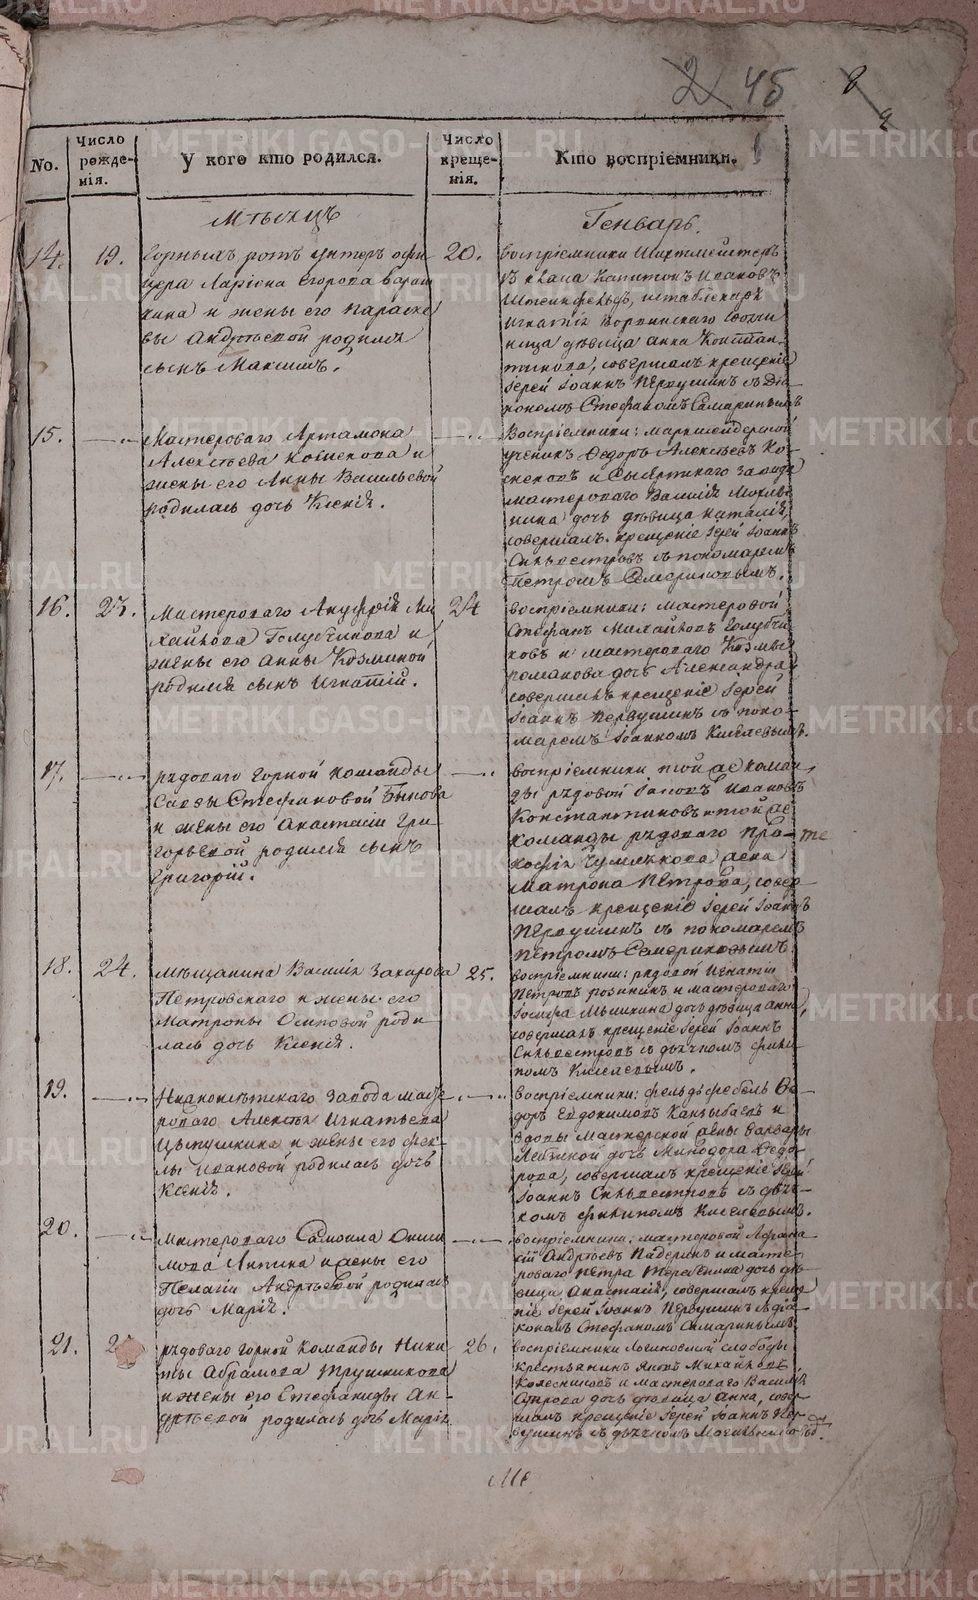 2 45
No.
Число рожденія.
У кого кто родился.
Число крещенія.
Кто воспріемники.
Мѣсяцъ
Генварь.
14. 19.
Горныхъ ротъ унтеръ офи
цера Ларіона Егорова
и жены его Параске
вы Андреевой родился
сынъ Максимъ.
20.
воспріемники Шихтмейстеръ
13 класа Капитонъ Ивановъ
дѣвица Анна Констан
тинова, совершалъ крещеніе
Іерей Іоаннъ Первушинъ съ Діа
кономъ Стефаномъ Самаринымъ
15.
Мастероваго Артамона
Алексѣева и
жены его Анны Васильевой
родилась дочь Ксенія.
Воспріемники: маркшейдерской
ученикъ Федоръ Алексѣевъ
и Сысертскаго завода
мастероваго Василія
дочь дѣвица Наталія,
совершалъ крещеніе Іерей Іоаннъ
Сильвестровъ съ пономаремъ
Петромъ Семериковымъ.
16. 23.
Мастероваго Ануфрія Ми
хайлова Голубчикова и
жены его Анны Козминой
родился сынъ Игнатій.
24
воспріемники: мастеровой
Стефанъ Михайловъ Голубчи
ковъ и мастероваго Козмы
Романова дочь Александра
совершалъ крещеніе Іерей
Іоаннъ Первушинъ съ поно
маремъ Іоанномъ Киселевымъ.
17.
рядоваго горной команды
Саввы Стефановой Быкова
и жены его Анастасіи Гри
горьевой родился сынъ
Григорій.
воспріемники той же коман
ды рядовой Ивановъ
Константиновъ и той же
команды рядоваго Про
кофія жена
Матрона Петрова, совер
шалъ крещеніе Іерей Іоаннъ
Первушинъ съ пономаремъ
Петромъ Семериковымъ.
18. 24.
Мѣщанина Василія Захарова
Петровскаго и жены его
Матроны Осиповой роди
лась дочь Ксенія.
25.
воспріемники: рядовой Игнатій
Петровъ и мастероваго
Іосифа дочь дѣвица Анна,
совершалъ крещеніе Іерей Іоаннъ
Сильвестровъ съ дьячкомъ Фили
помъ Киселевымъ.
19.
завода масте
роваго Алексѣя Игнатьева
и жены его Фек
лы Ивановой родилась дочь
Ксенія.
воспріемники: фельдфебель Фе
доръ Евдокимовъ и
вдовы мастерской жены Варвары
дочь Минодора Федо
рова, совершалъ крещеніе Іерей
Іоаннъ Сильвестровъ съ дьяч
комъ Филипомъ Киселевымъ.
20.
Мастероваго Самоила Они
мова и жены его
Пелагіи Андреевой родилась
дочь Марія.
воспріемники: мастеровой Афана
сій Андреевъ и масте
роваго Петра дочь дѣ
вица Анастасія, совершалъ креще
ніе Іерей Іоаннъ Первушинъ съ діа
кономъ Стефаномъ Самаринымъ
21.
рядоваго горной команды Ники
ты Абрамова Трушникова
и жены его Стефаниды Ан
дреевой родилась дочь Марія
26.
воспріемники слободы
крестьянинъ Яковъ Михайловъ
Колесниковъ и мастероваго Василія
дочь дѣвица Анна, совер
шалъ крещеніе Іерей Іоаннъ Пер
вушинъ съ дьячкомъ
METRIKI.GASO-URAL.RU